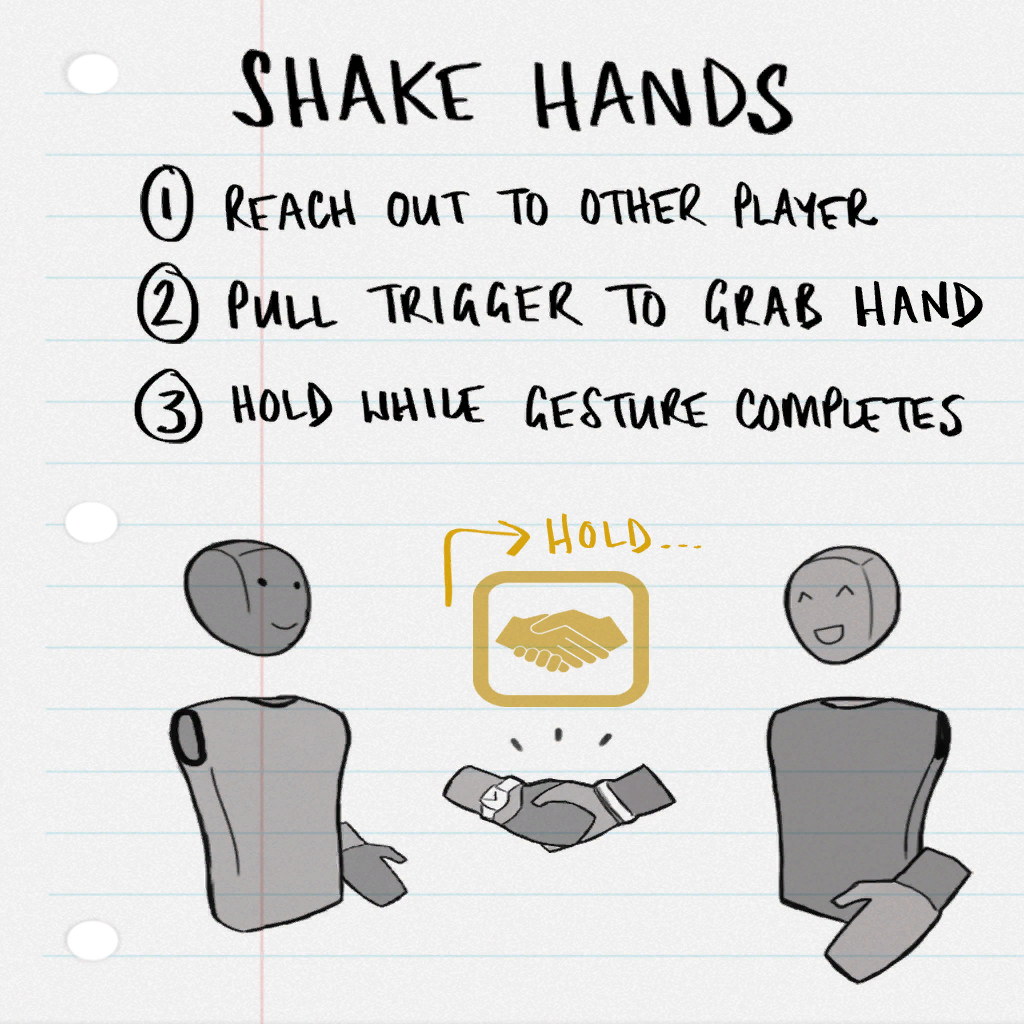 SHAKE HANDS
1 REACH OUT TO OTHER PLAYER
2 PULL TRIGGER TO GRAB HAND
3 HOLD WHILE GESTURE COMPLETES
HOLD...